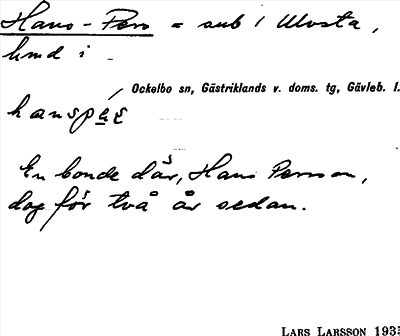 Hans-Pers = sub 1 Ulvsta,
hmd i
Ockelbo sn, Gästriklands v. doms. tg, Gävleb. l.
En bonde där, Hans Persson,
dog för två år sedan.
LARS LARSSON 193